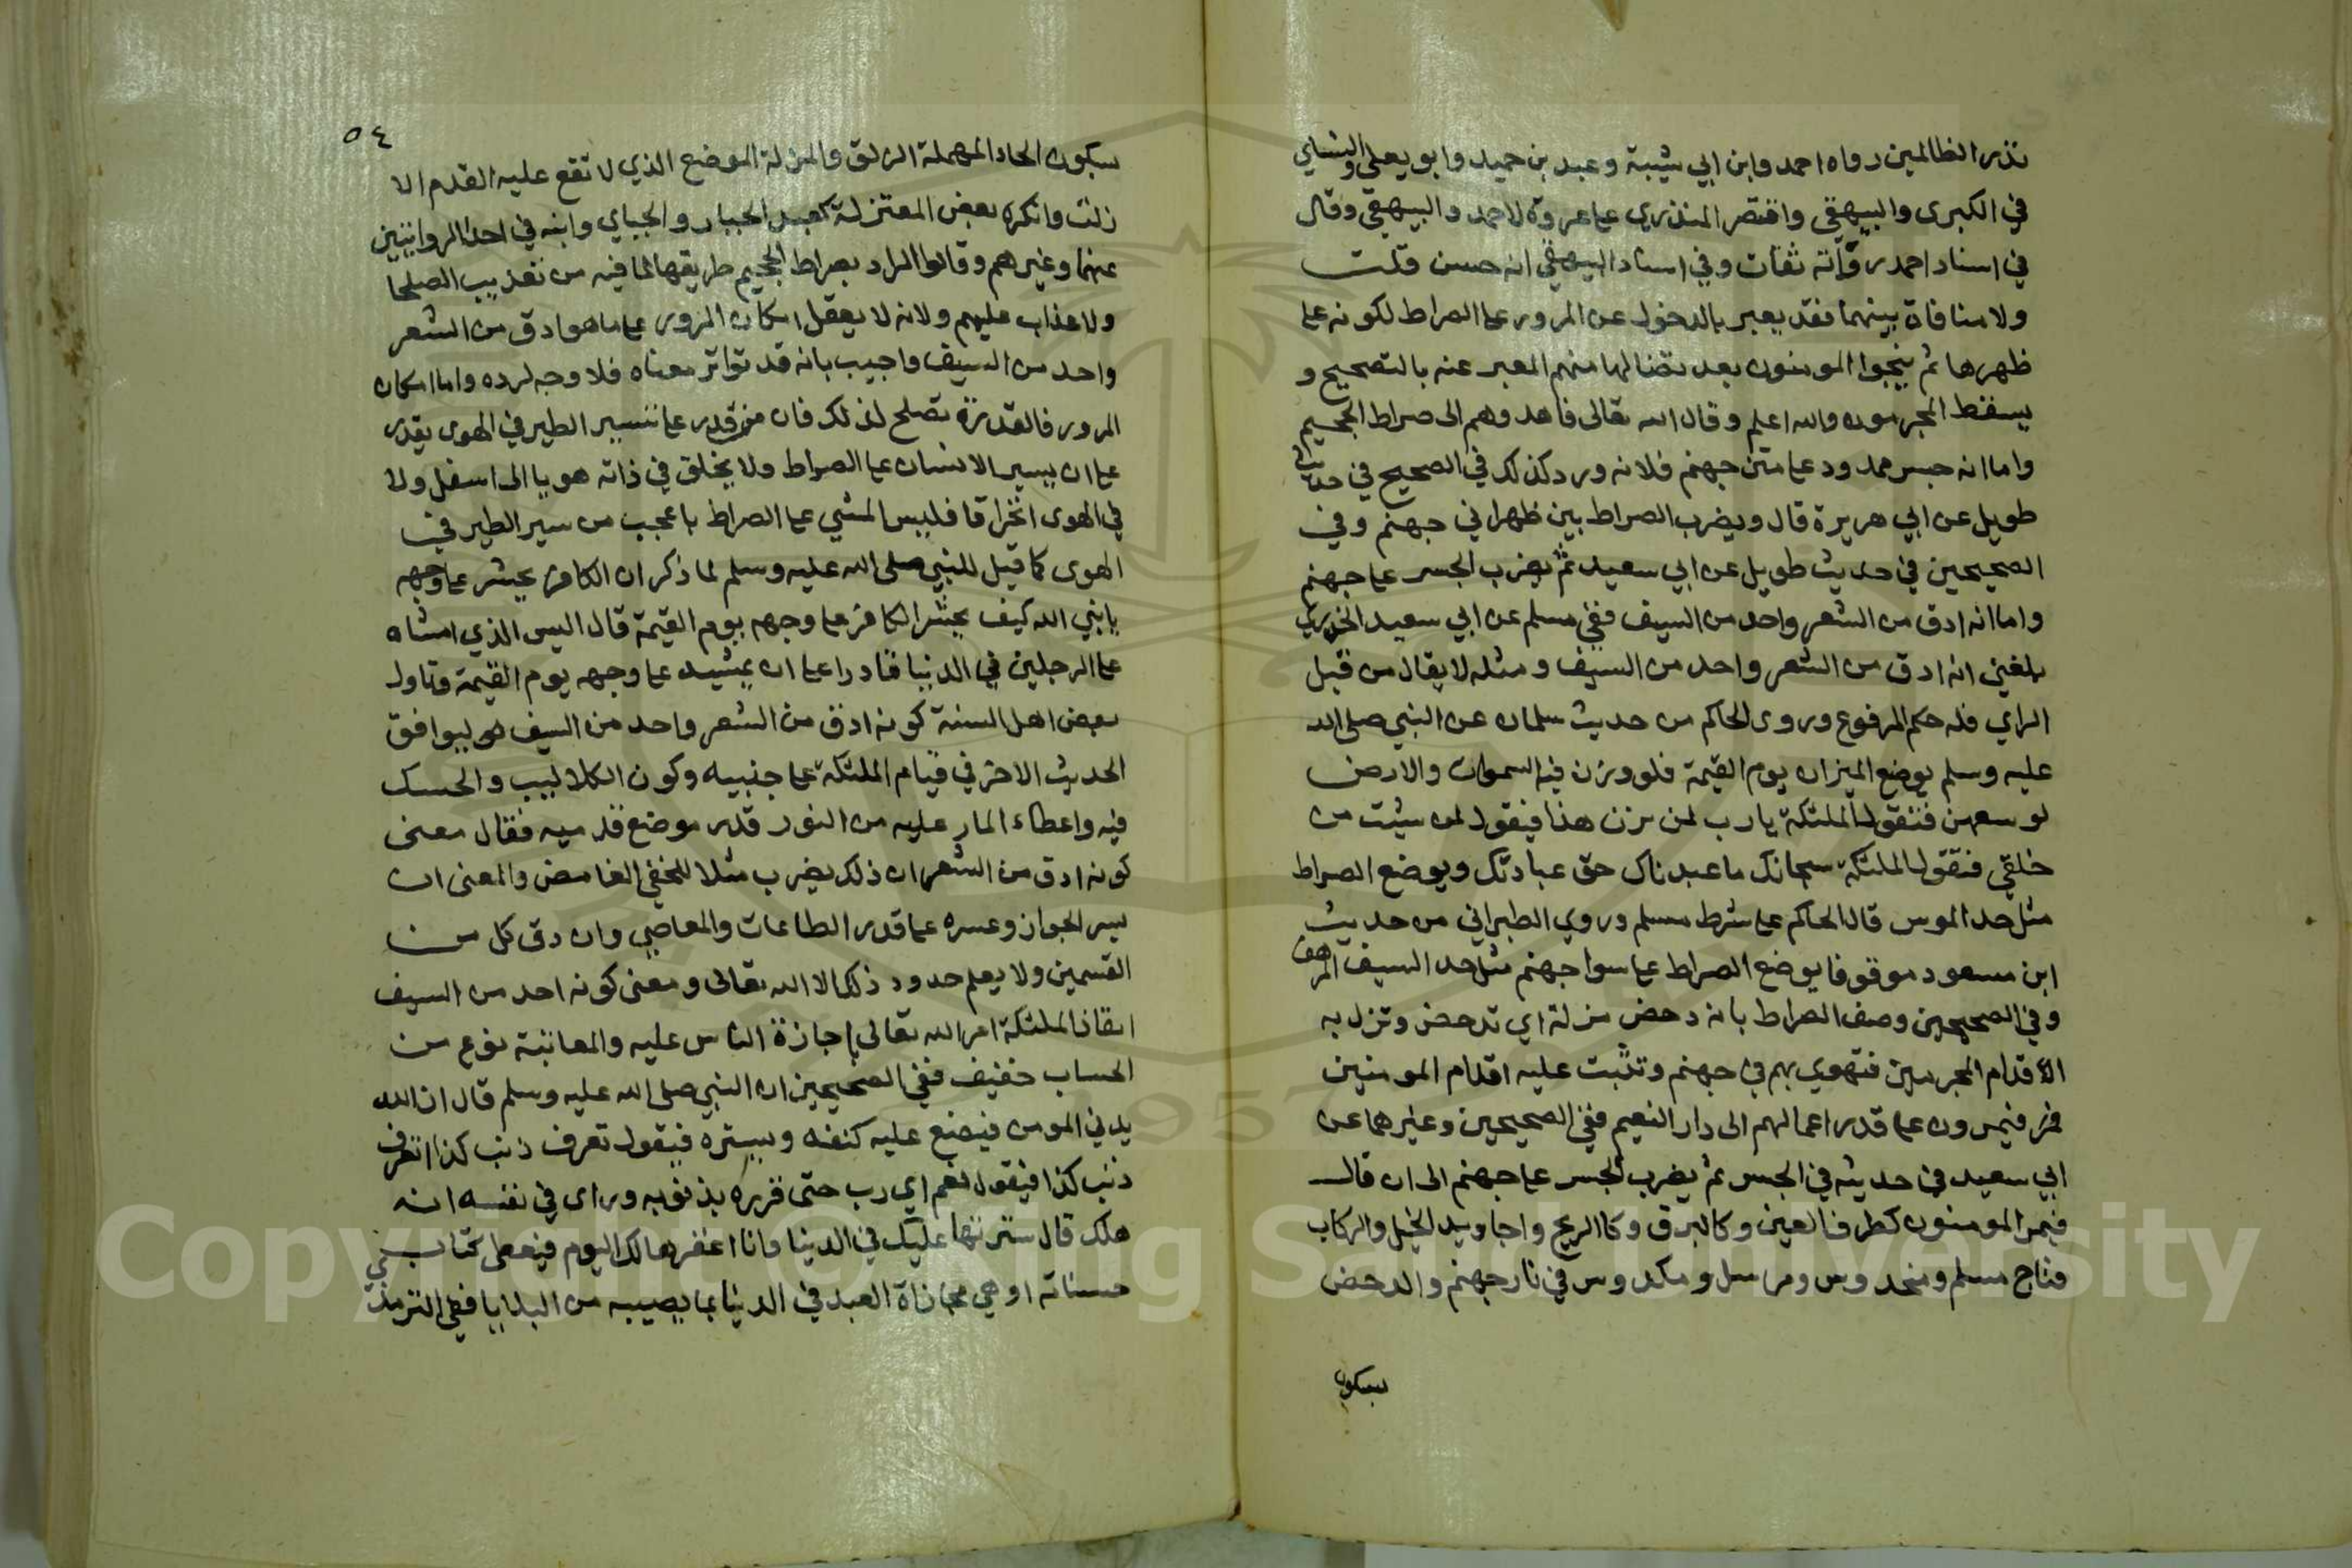 نذر الظالمين رواه احمد وابن ابي شيبة وعبد بن حميد وابو يعلى والنساي
في الكبرى والبيهقي واقتصر المنذري على عزوه لاحمد والبيهقي وقال
في اسناد احمد رواته ثقات وفي اسناد البيهقي انه حسن قلت
ولا منافاة بينهما فقد يعبر بالدخول عن المرور على الصراط لكونه على
ظهرها ثم ينجوا المومنون بعد تضا لها منهم المعبر عنه بالتصحيح و
يسقط المجرمون والله اعلم وقال الله تعالى فاهدوهم الى صراط الجحيم
واما انه جسر ممدود على متن جهنم فلانه ورد كذلك في الصحيح في حديث
طويل عن ابي هريرة قال ويضرب الصراط بين ظهراني جهنم وفي
الصحيحين في حديث طويل عن ابي سعيد ثم يضرب الجسر على جهنم
واما انه ادق من الشعر واحد من السيف ففي مسلم عن ابي سعيد الخدري
بلغني انه ادق من الشعر واحد من السيف ومثله لا يقال من قبل
الراي فله حكم المرفوع وروى الحاكم من حديث سلمان عن النبي صلى الله
عليه وسلم يوضع الميزان يوم القيمة فلو وزن فيه السموات والارض
لوسعهن فتقول الملئكة يا رب لمن يزن هذا فيقول لمن شيت من
خلقي فتقول الملئكة سبحانك ما عبدناك حق عبادتك ويوضع الصراط
مثل حد الموس قال الحاكم على شرط مسلم وروي الطبراني من حديث
ابن مسعود موقوفا يوضع الصراط على سوا جهنم مثل حد السيف المرهف
وفي الصحيحين وصف الصراط بانه دحض مزلة اي تدحض وتزل به
الاقدام المجرمين فتهوي بهم في جهنم وتثبت عليه اقدام المومنين
فيمرون على قدر اعمالهم الى دار النعيم ففي الصحيحين وغيرهما عن
ابي سعيد في حديثه في الجسر ثم يضرب الجسر على جهنم الى ان قال
فيمر المومنون كطرف العين وكالبرق وكالريح واجاويد الخيل والركاب
فناج مسلم ومخدوس ومرسل ومكدوس في نار جهنم والدحض
بسكون
٥٤
بسكون الحاء المهملة الزلق والمزلة الموضع الذي لا تقع عليه القدم الا
زلت وانكره بعض المعتزلة كعبد الجبار والجباي وابنه في احد الروايتين
عنهما وغيرهم وقالوا المراد بصراط الجحيم طريقها لما فيه من تعذيب الصلحا
ولا عذاب عليهم ولانه لا يعقل امكان المرور على ما هو ادق من الشعر
واحد من السيف واجيب بانه قد تواتر معناه فلا وجه لرده واما امكان
المرور فالقدرة تصلح لذلك فان من قدر على تسيير الطير في الهوى يقدر
على ان يسير الانسان على الصراط ولا يخلق في ذاته هويا الى اسفل ولا
في الهوى انخراقا فليس المشي على الصراط باعجب من سير الطير في
الهوى كما قيل للنبي صلى الله عليه وسلم لما ذكر ان الكافر يحشر على وجهه
يا نبي الله كيف يحشر الكافر على وجهه يوم القيمة قال اليس الذي امشاه
على الرجلين في الدنيا قادرا على ان يمشيه على وجهه يوم القيمة وتاول
بعض اهل السنة كونه ادق من الشعر واحد من السيف ليوافق
الحديث الاخر في قيام الملئكة على جنبيه وكون الكلاليب والحسك
فيه واعطاء المار عليه من النور قدر موضع قدميه فقال معنى
كونه ادق من الشعر ان ذلك يضرب مثلا للخفي الغامض والمعنى ان
يسر الجواز وعسره على قدر الطاعات والمعاصي وان دق كل من
القسمين ولا يعلم حدود ذلك الا الله تعالى ومعنى كونه احد من السيف
انفاذ الملئكة امر الله تعالى باجازة الناس عليه والمعاتبة نوع من
الحساب خفيف ففي الصحيحين ان النبي صلى الله عليه وسلم قال ان الله
يدني المومن فيضع عليه كنفه ويستره فيقول تعرف ذنب كذا اتعرف
ذنب كذا فيقول نعم اي رب حتى قرره بذنوبه وراى في نفسه انه
هلك قال سترتها عليك في الدنيا وانا اغفرها لك اليوم فيعطى كتاب
حسناته او هي مجازاة العبد في الدنيا بما يصيبه من البلايا ففي الترمذي
Copyright © King Saud University
1957